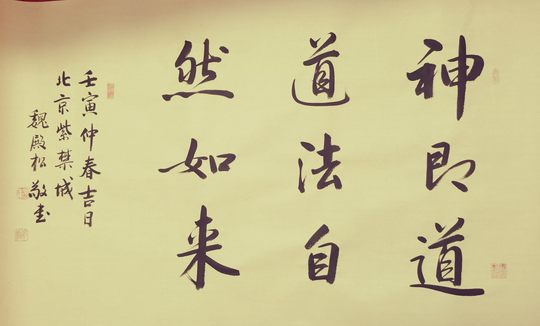 神即道
道法自
然如来
壬寅仲春吉日
北京紫禁城
魏殿松敬书